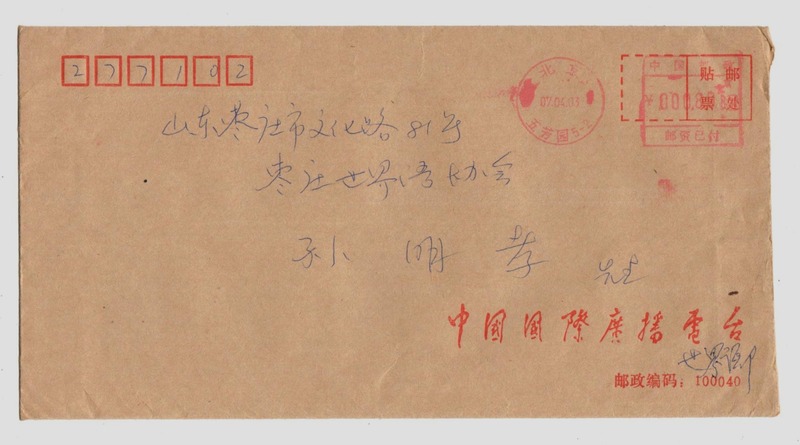 277102
北京
07.04.03
五芳园5-2
中国邮政
贴邮
票处
邮资已付
山东枣庄市文化路81号
枣庄世界语协会
孙明孝 先生
中国国際廣播電台
世界语部
邮政编码：100040